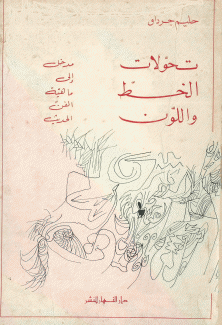 حليم جرداق
تحولات
الخط
واللون
مدخل
إلى
ماهية
الفن
الحديث
دار النهار للنشر